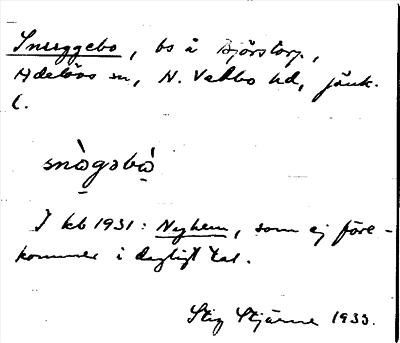 Snuggebo, bs å Björstorp,
Adelövs sn, N. Vedbo hd, Jönk.
l.
snògəbò
I kb 1931: Nyhem, som ej före-
kommer i dagligt tal.
Stig Stjärne 1933.